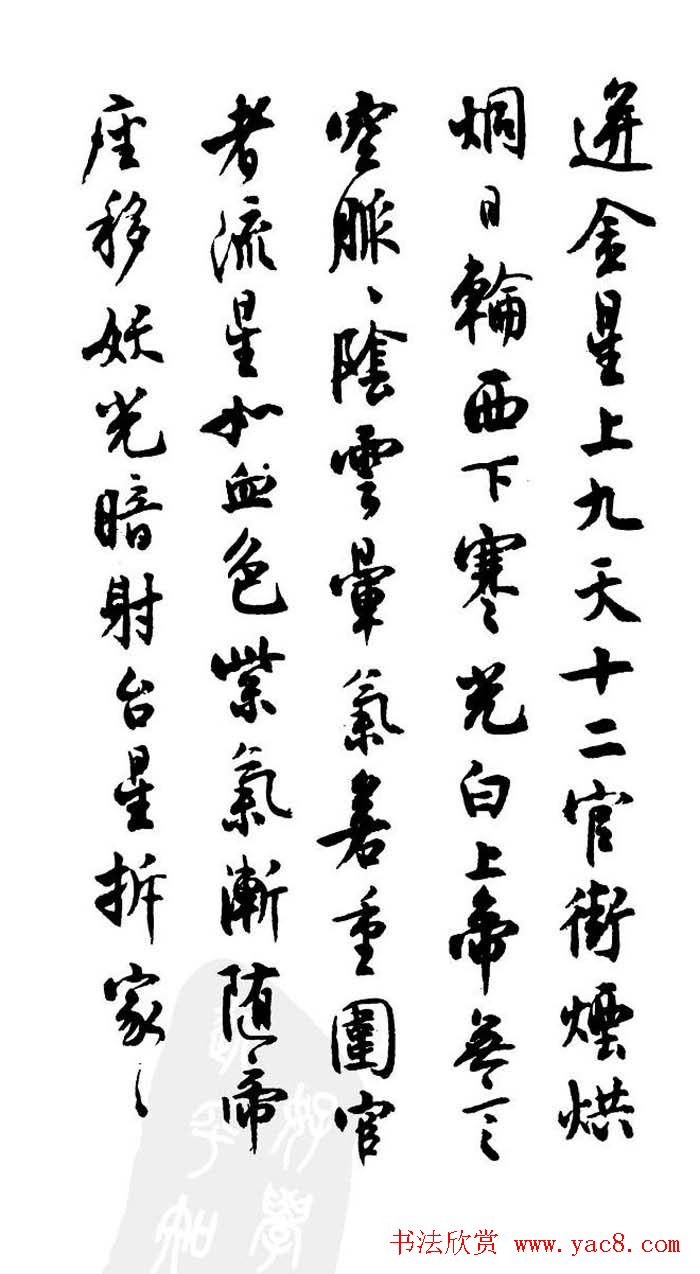 迸金星上九天十二官街煙烘
烔日輪西下寒光白上帝無言
空脈々陰雲暈氣若重圍宦
者流星如血色紫氣漸随帝
座移妖光暗射台星拆家々
书法欣赏 www.yac8.com